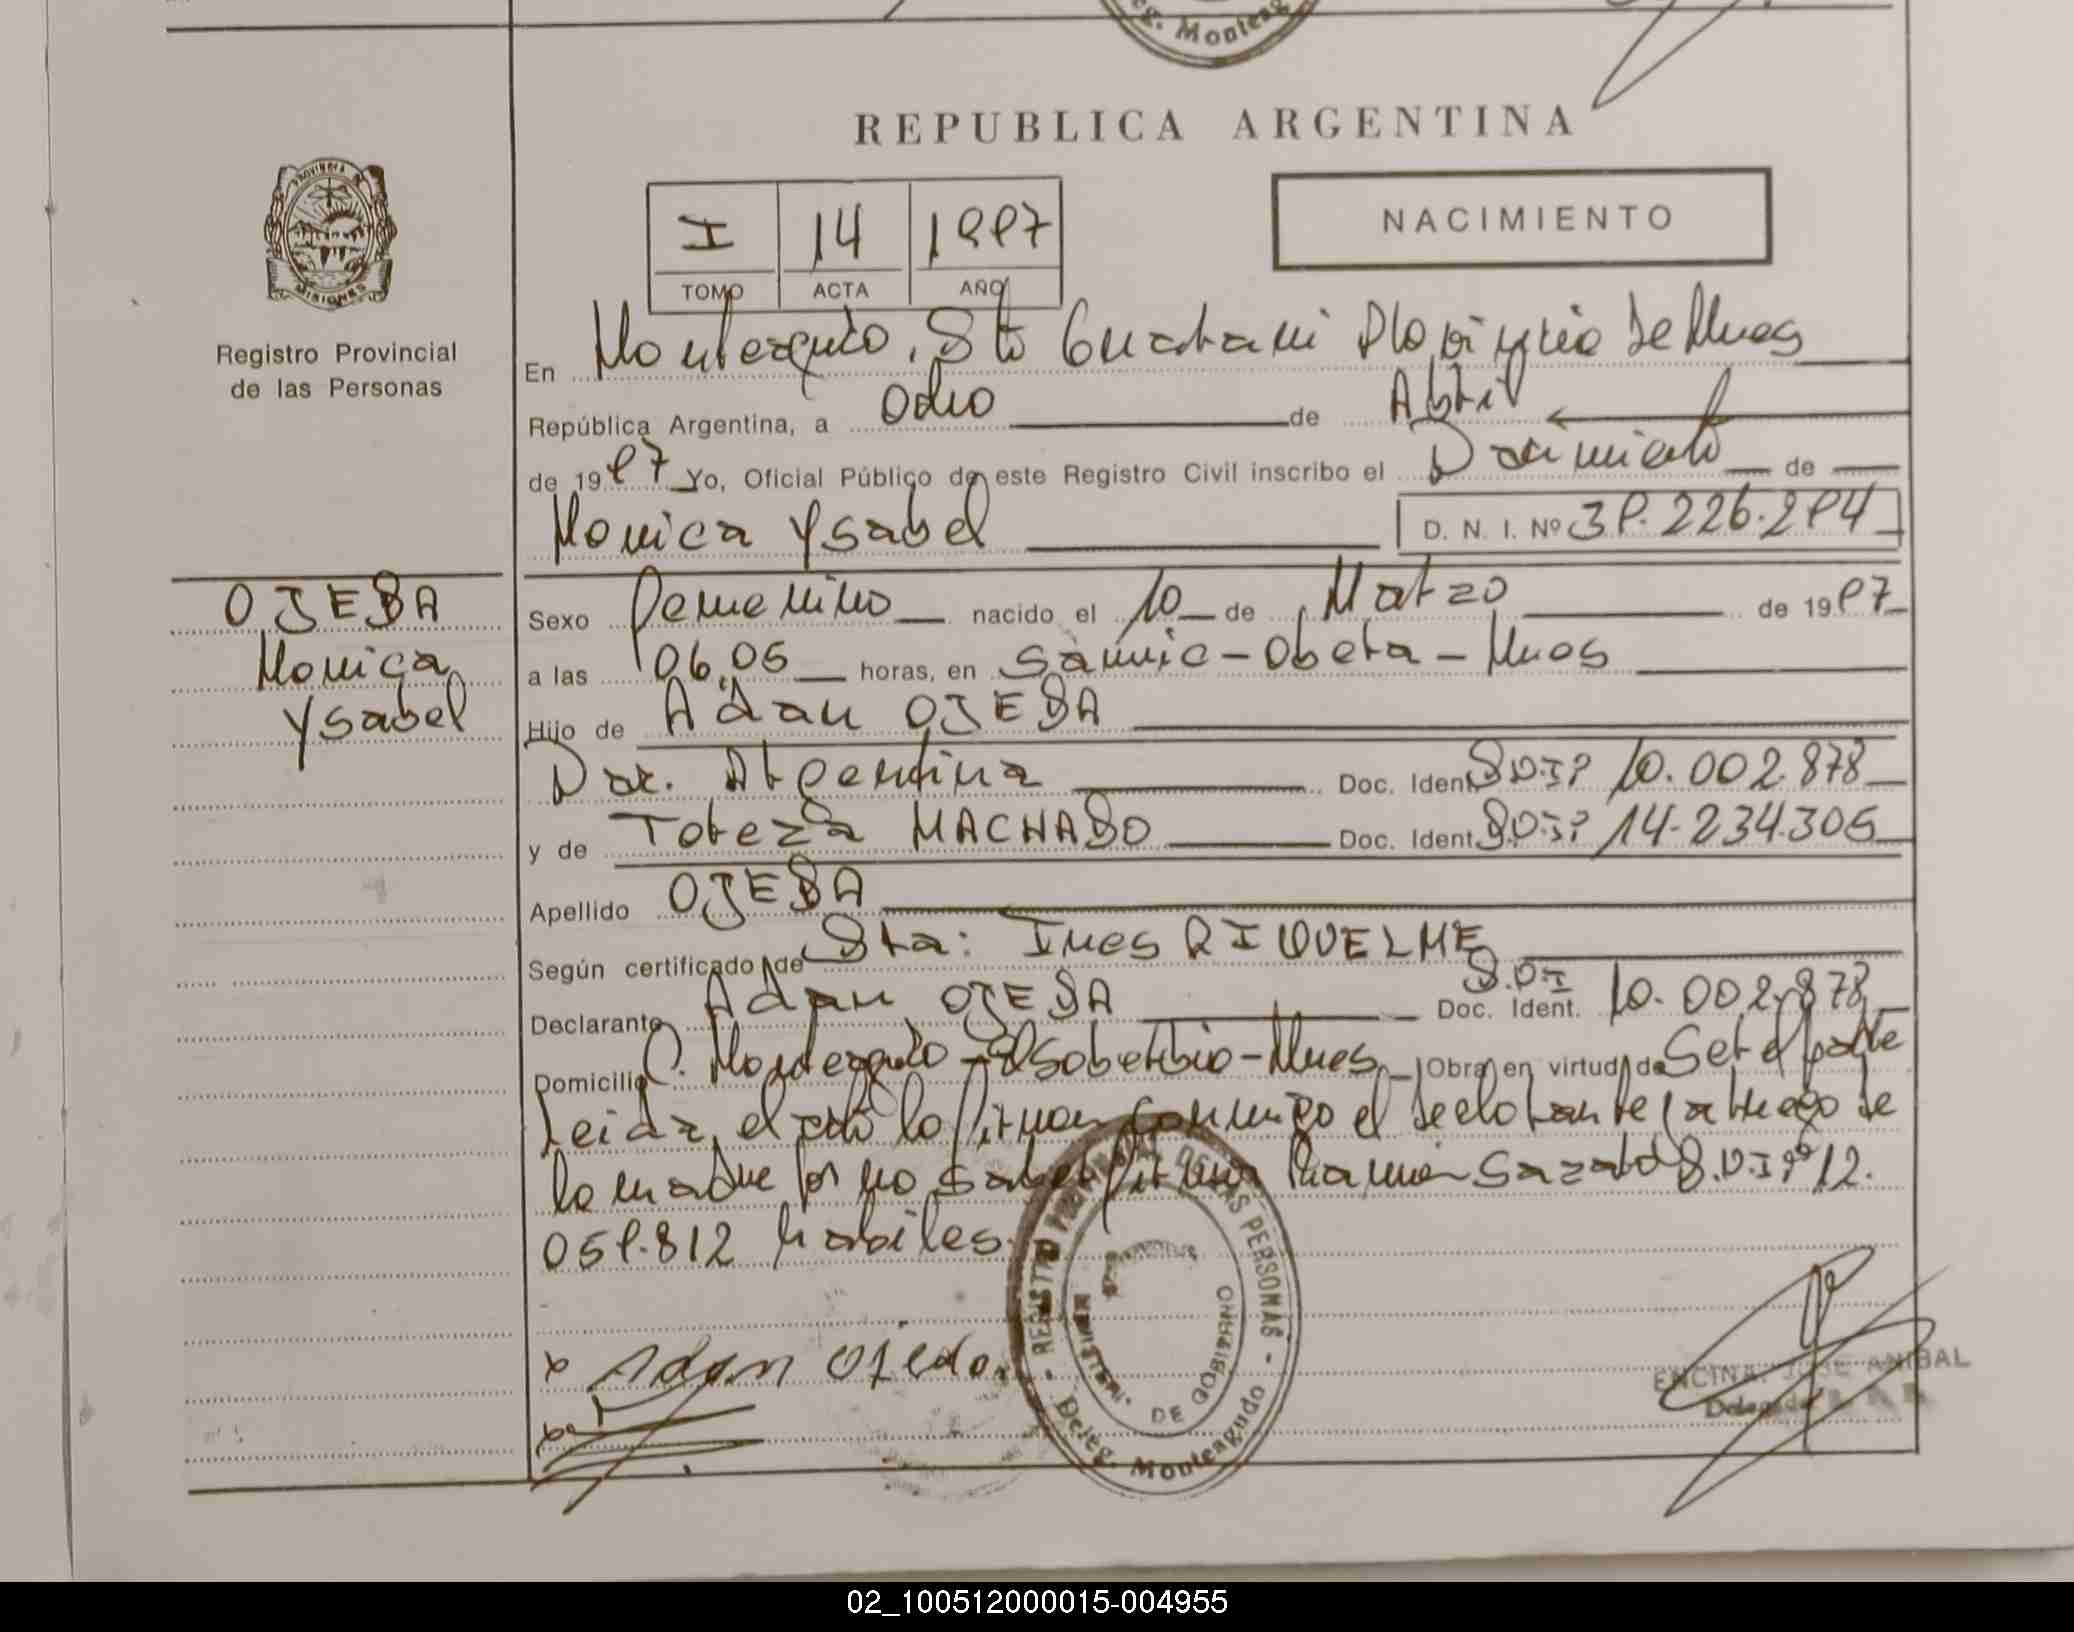 eg. Monteag
REPUBLICA ARGENTINA
PROVINCIA DE
MISIONES
Registro Provincial
de las Personas
NACIMIENTO
I 14 1997
TOMO ACTA AÑO
En Monteagudo, Dto Guarani Provincia de Mnes
República Argentina, a Ocho de Abril
de 1997 Yo, Oficial Público de este Registro Civil inscribo el Nacimiento de
Monica Ysabel D. N. I. Nº 39.226.294
OJEDA
Monica
Ysabel
Sexo Femenino nacido el 10 de Marzo de 1997
a las 06,05 horas, en Samic - Obera - Mnes
Hijo de Adan OJEDA
Nac. Argentina Doc. Ident. D.N.Iº 10.002.878
y de Tereza MACHADO Doc. Ident. D.N.Iº 14.234.305
Apellido OJEDA
Según certificado de Dra: Ines RIQUELME
Declarante Adan OJEDA Doc. Ident. D.N.I 10.002.878
Domicilio C. Monteagudo - El Soberbio - Mnes Obra en virtud de Ser el padre
Leida, el acta la firman conmigo el declarante, a ruego de
la madre por no saber firmar Ramon D.N.Iº 12.
059.812 habiles.
x Adan Ojeda.
REGISTRO PROVINCIAL DE LAS PERSONAS
MINISTERIO DE GOBIERNO
Deleg. Monteagudo
ENCINA, JOSE ANIBAL
Delegado
02_100512000015-004955